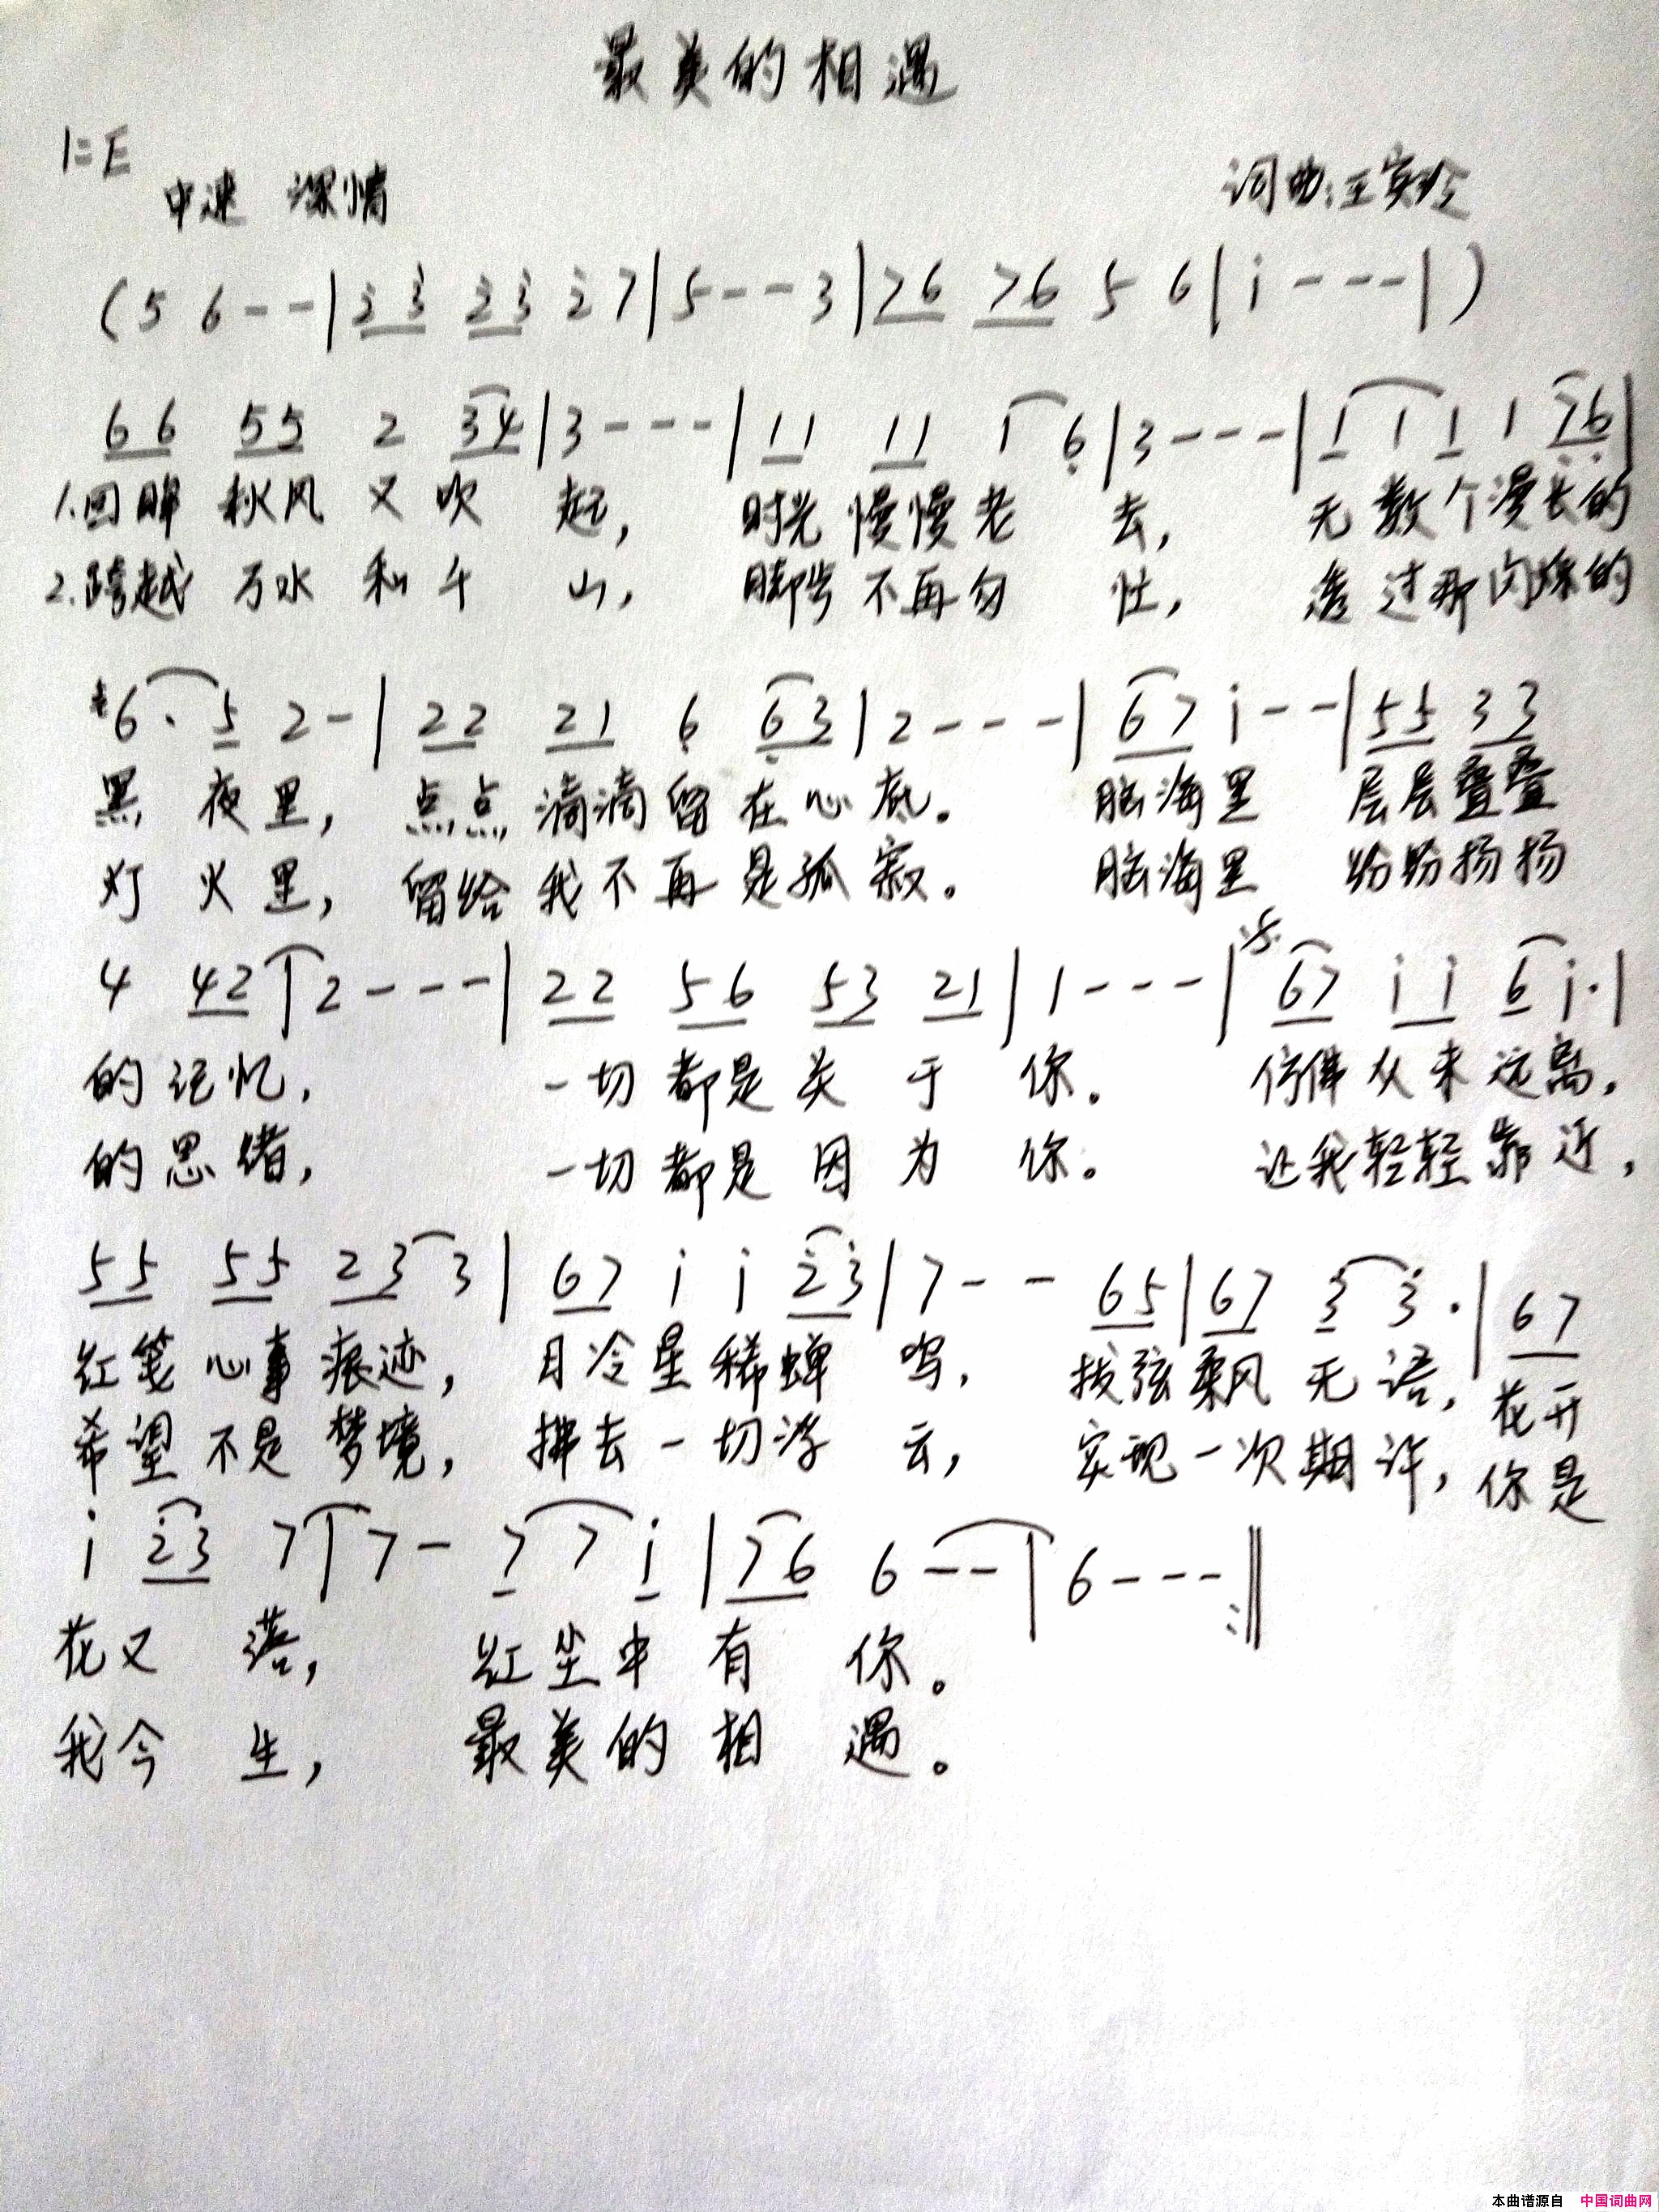 最美的相遇
1=E
中速 深情 词曲:王
(5 6 - - | 2̇3̇ 2̇3̇ 2̇ 7 | 5 - - 3 | 76 76 5 6 | i - - - | )
66 55 2 34 | 3 - - - | 11 11 1 6̣ | 3 - - - | 1 1 1 1 7̣6̣ |
1.回眸 秋风 又 吹 起, 时光 慢慢 老 去, 无数个漫长的
2.跨越 万水 和 千 山, 脚步 不再匆 忙, 透过那闪烁的
#6 · 5 2 - | 22 21 6̣ 6̣3 | 2 - - - | 67 i - - | 55 33
黑 夜里, 点点 滴滴 留 在 心 底。 脑海里 层层叠叠
灯 火里, 留给 我不再是孤 寂。 脑海里 纷纷扬扬
4 42 | 2 - - - | 22 56 53 21 | 1 - - - | 67 i i 6 i · |
的记忆, 一切 都是 关 于 你。 仿佛从未远离,
的思绪, 一切 都是 因 为 你。 让我轻轻靠近,
55 55 23 3 | 67 i i 2̇3̇ | 7 - - 65 | 67 3̇ 3̇ · | 67
红笺 心事 痕迹, 月冷星稀蝉 鸣, 拨弦乘风 无语, 花开
希望 不是 梦境, 拂去一切浮 云, 实现一次期许, 你是
i 2̇3̇ 7 | 7 - 7 7 i | 76 6 - - | 6 - - - :‖
花又 落, 红尘中 有 你。
我今 生, 最美的 相 遇。
本曲谱源自 中国词曲网